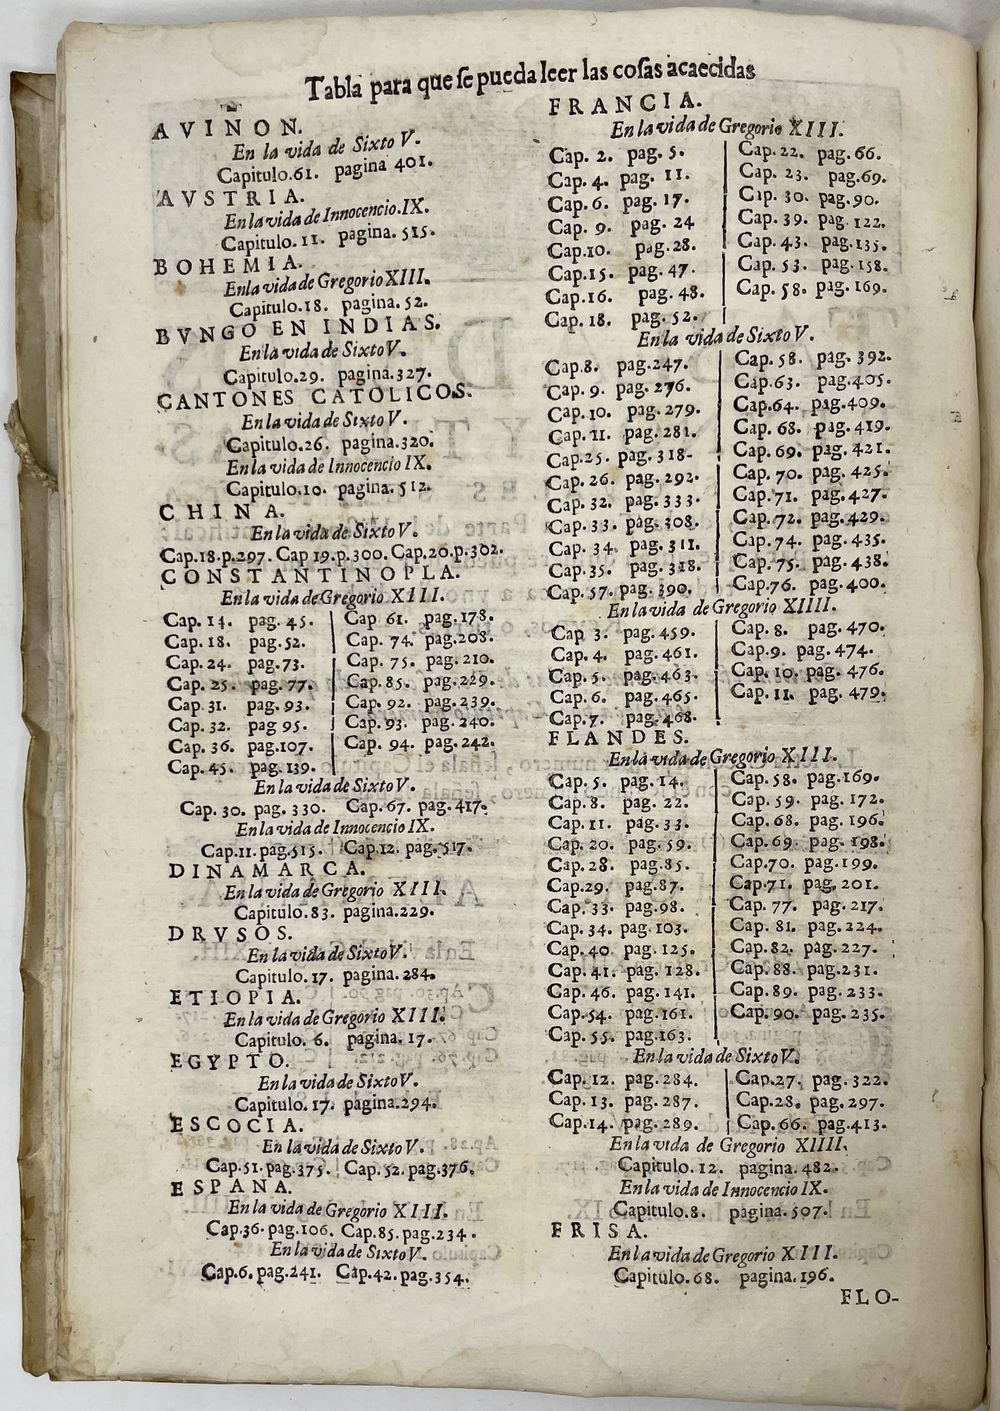 Tabla para que se pueda leer las cosas acaecidas
AVIÑON.
En la vida de Sixto V.
Capitulo.61. pagina 401.
AVSTRIA.
En la vida de Innocencio.IX.
Capitulo.11. pagina.515.
BOHEMIA.
En la vida de Gregorio XIII.
Capitulo.18. pagina.52.
BVNGO EN INDIAS.
En la vida de Sixto V.
Capitulo.29. pagina.327.
CANTONES CATOLICOS.
En la vida de Sixto V.
Capitulo.26. pagina.320.
En la vida de Innocencio IX.
Capitulo.10. pagina.512.
CHINA.
En la vida de Sixto V.
Cap.18.p.297. Cap 19.p.300. Cap.20.p.302.
CONSTANTINOPLA.
En la vida de Gregorio XIII.
Cap.14. pag.45.
Cap.18. pag.52.
Cap.24. pag.73.
Cap.25. pag.77.
Cap.31. pag.93.
Cap.32. pag 95.
Cap.36. pag.107.
Cap.45. pag.139.
Cap 61. pag.178.
Cap. 74. pag.208.
Cap. 75. pag.210.
Cap.85. pag.229.
Cap. 92. pag.239.
Cap.93. pag.240.
Cap. 94. pag.242.
En la vida de Sixto V.
Cap.30. pag.330. Cap.67. pag.417.
En la vida de Innocencio IX.
Cap.11.pag.515. Cap.12. pag.517.
DINAMARCA.
En la vida de Gregorio XIII.
Capitulo.83. pagina.229.
DRVSOS.
En la vida de Sixto V.
Capitulo.17. pagina.284.
ETIOPIA.
En la vida de Gregorio XIII.
Capitulo.6. pagina.17.
EGYPTO.
En la vida de Sixto V.
Capitulo.17. pagina.294.
ESCOCIA.
En la vida de Sixto V.
Cap.51.pag.375. Cap.52.pag.376.
ESPANA.
En la vida de Gregorio XIII.
Cap.36.pag.106. Cap.85.pag.234.
En la vida de Sixto V.
Cap.6.pag.241. Cap.42.pag.354.
FRANCIA.
En la vida de Gregorio XIII.
Cap. 2. pag.5.
Cap. 4. pag. 11.
Cap.6. pag. 17.
Cap. 9. pag.24
Cap.10. pag.28.
Cap.15. pag.47.
Cap.16. pag.48.
Cap. 18. pag.52.
Cap.22. pag.66.
Cap. 23. pag.69.
Cap. 30. pag.90.
Cap.39. pag.122.
Cap.43. pag.135.
Cap. 53. pag.158.
Cap. 58. pag.169.
En la vida de Sixto V.
Cap.8. pag.247.
Cap. 9. pag.276.
Cap.10. pag.279.
Cap.11. pag.281.
Cap.25. pag.318-
Cap.26. pag.292.
Cap.32. pag.333.
Cap.33. pag.308.
Cap.34. pag.311.
Cap.35. pag.318.
Cap.57. pag.390.
Cap. 58. pag.392.
Cap.63. pag.405.
Cap.64. pag.409.
Cap.68. pag.419.
Cap.69. pag.421.
Cap. 70. pag.425.
Cap.71. pag.427.
Cap.72. pag.429.
Cap.74. pag.435.
Cap.75. pag.438.
Cap.76. pag.400.
En la vida de Gregorio XIIII.
Cap 3. pag.459.
Cap. 4. pag.461.
Cap.5. pag.463.
Cap.6. pag.465.
Cap.7. pag.468.
Cap.8. pag.470.
Cap.9. pag.474.
Cap.10. pag.476.
Cap.11. pag.479.
FLANDES.
En la vida de Gregorio XIII.
Cap.5. pag.14.
Cap.8. pag.22.
Cap.11. pag.33.
Cap.20. pag.59.
Cap.28. pag.85.
Cap.29. pag.87.
Cap.33. pag.98.
Cap.34. pag.103.
Cap.40. pag.125.
Cap.41. pag.128.
Cap.46. pag.141.
Cap.54. pag.161.
Cap.55. pag.163.
Cap.58. pag.169.
Cap.59. pag.172.
Cap.68. pag.196.
Cap.69. pag.198.
Cap.70. pag.199.
Cap.71. pag.201.
Cap.77. pag.217.
Cap.81. pag.224.
Cap.82. pag.227.
Cap.88. pag.231.
Cap.89. pag.233.
Cap.90. pag.235.
En la vida de Sixto V.
Cap.12. pag.284.
Cap.13. pag.287.
Cap.14. pag.289.
Cap.27. pag.322.
Cap.28. pag.297.
Cap.66. pag.413.
En la vida de Gregorio XIIII.
Capitulo.12. pagina.482.
En la vida de Innocencio IX.
Capitulo.8. pagina.507.
FRISA.
En la vida de Gregorio XIII.
Capitulo.68. pagina.196.
FLO-